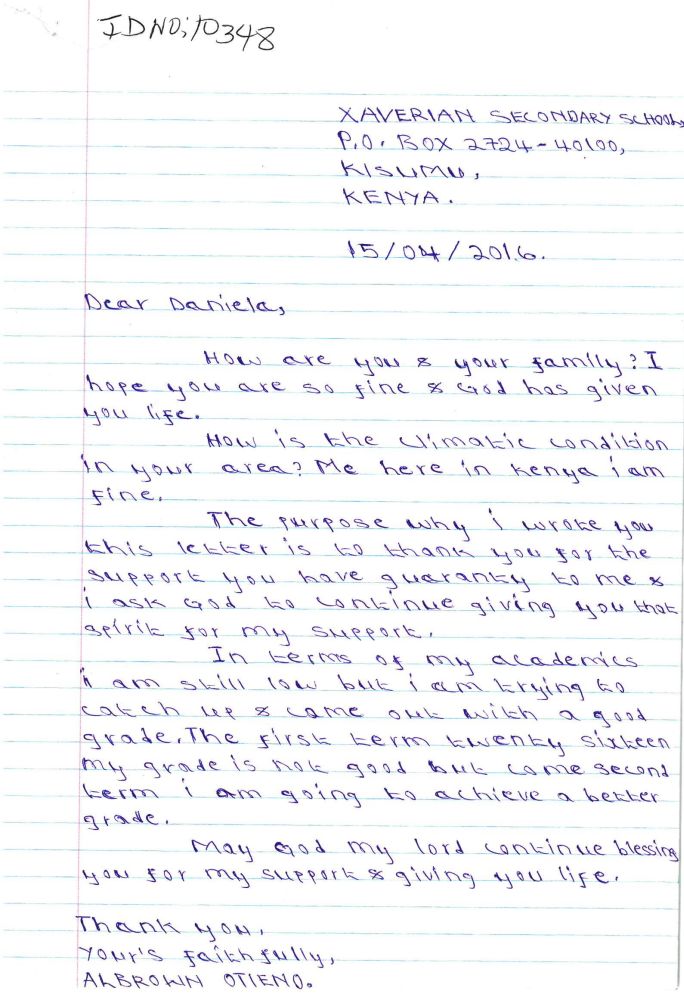 ID NO; 10348
XAVERIAN SECONDARY SCHOOL,
P.O. BOX 2724-40100,
KISUMU,
KENYA.
15/04/2016.
Dear Daniela,
How are you & your family? I
hope you are so fine & God has given
you life.
How is the climatic condition
in your area? Me here in kenya i am
fine.
The purpose why i wrote you
this letter is to thank you for the
support you have guaranty to me &
i ask God to continue giving you that
spirit for my support.
In terms of my academics
i am still low but i am trying to
catch up & come out with a good
grade. The first term twenty sixteen
my grade is not good but come second
term i am going to achieve a better
grade.
May God my lord continue blessing
you for my support & giving you life.
Thank you,
Your's faithfully,
ALBROWN OTIENO.